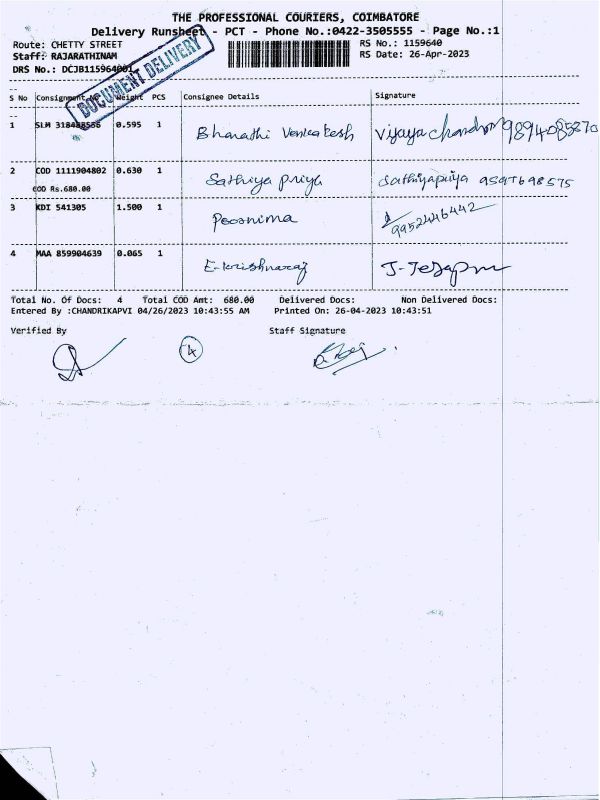 THE PROFESSIONAL COURIERS, COIMBATORE
Delivery Runsheet - PCT - Phone No.:0422-3505555 - Page No.:1
Route: CHETTY STREET
RS No.: 1159640
Staff: RAJARATHINAM
RS Date: 26-Apr-2023
DRS No.: DCJB115964001
DOCUMENT DELIVERY
S No Consignment No Weight PCS Consignee Details Signature
1 SLM 318488556 0.595 1 Bharathi Venkatesh Vijaya chandran 9894085870
2 COD 1111904802 0.630 1 Sathiya priya Sathiyapriya 9597698575
COD Rs.680.00
3 KDI 541305 1.500 1 Poornima 9952446442
4 MAA 859904639 0.065 1 E-krishnaraj
Total No. Of Docs: 4 Total COD Amt: 680.00 Delivered Docs: Non Delivered Docs:
Entered By :CHANDRIKAPVI 04/26/2023 10:43:55 AM Printed On: 26-04-2023 10:43:51
Verified By Staff Signature
4